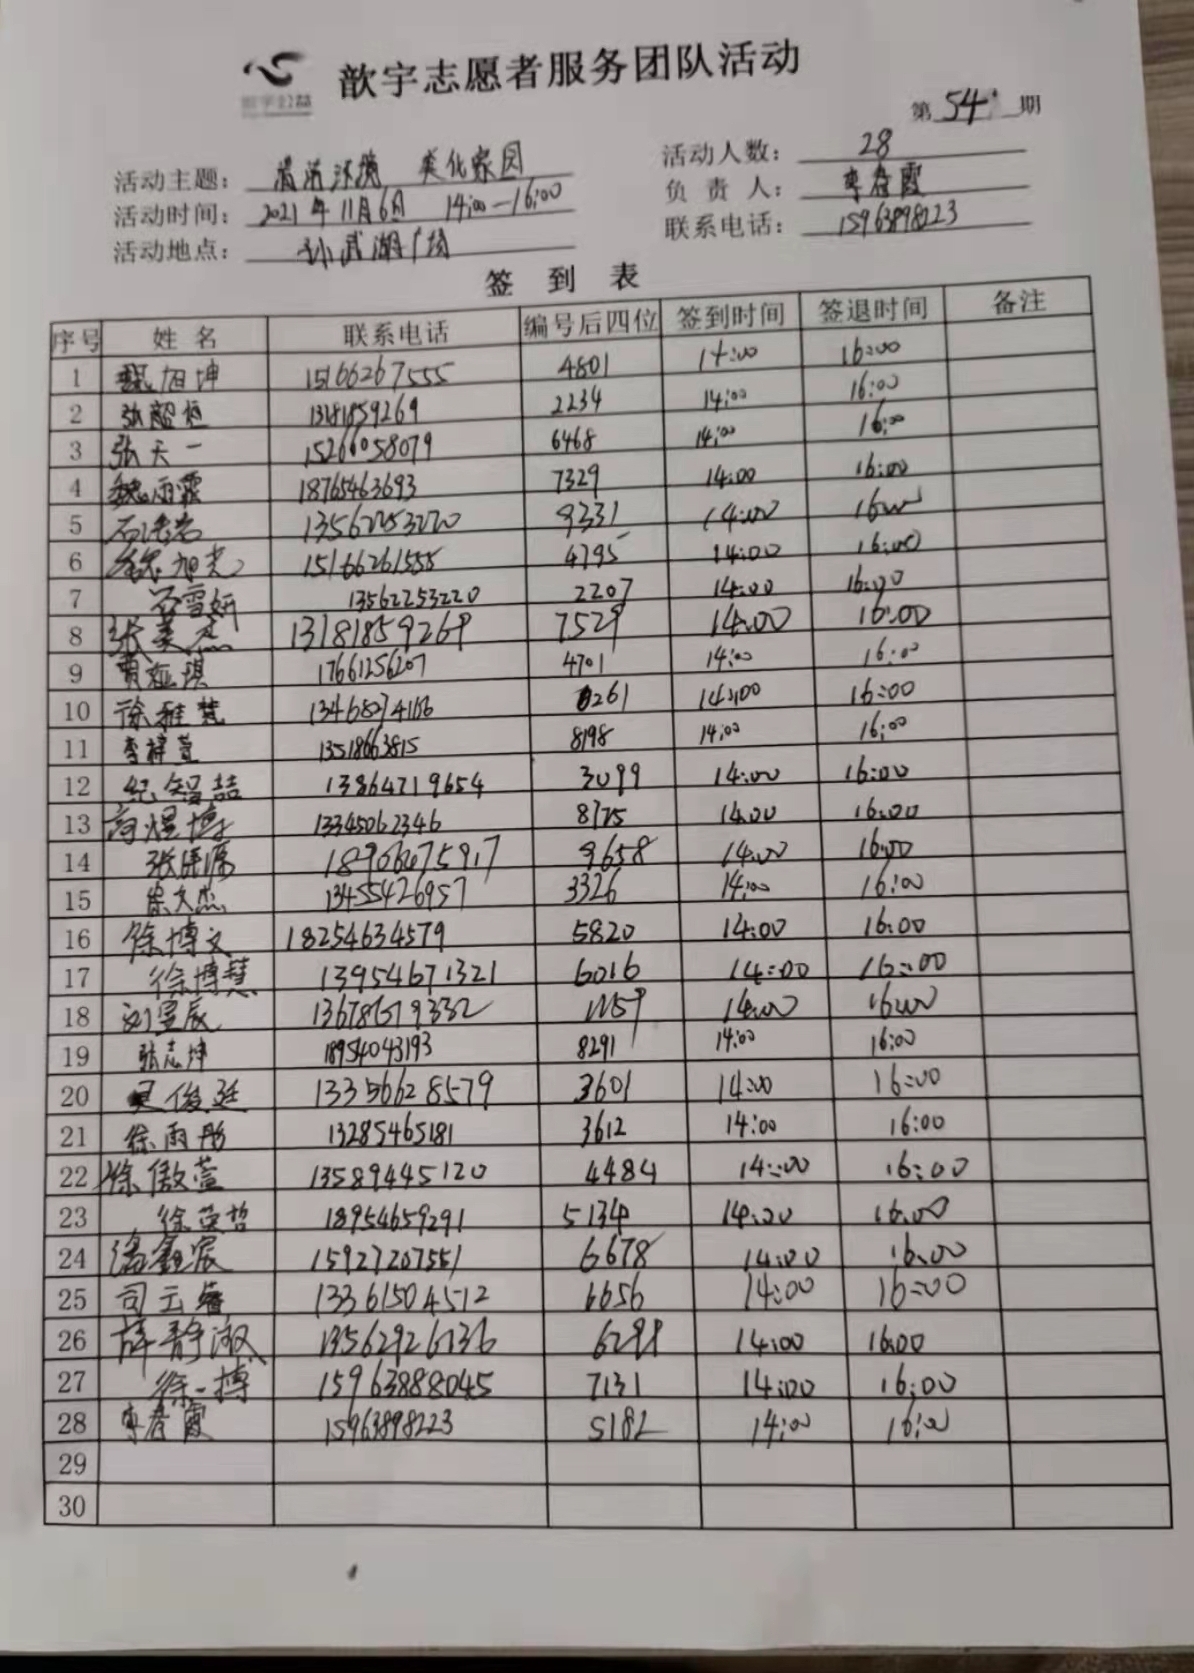 歆宇公益
歆宇志愿者服务团队活动
第 54 期
活动主题： 清洁环境 美化家园
活动人数： 28
活动时间： 2021年11月6日 14:00-16:00
负责人： 李春霞
活动地点： 孙武湖广场
联系电话： 15963898223
签到表
序号 姓名 联系电话 编号后四位 签到时间 签退时间 备注
1 魏旭坤 15166267555 4801 14:00 16:00
2 张韶恒 13181859269 2234 14:00 16:00
3 张天一 15266058079 6468 14:00 16:00
4 魏雨霖 18765463693 7329 14:00 16:00
5 13562253220 9331 14:00 16:00
6 魏旭尧 15166261555 4795 14:00 16:00
7 石雪妍 13562253220 2207 14:00 16:00
8 张美杰 13181859269 7529 14:00 16:00
9 贾琪 17661256207 4701 14:00 16:00
10 徐雅梵 13468274166 6261 14:00 16:00
11 李梓萱 13518663815 8198 14:00 16:00
12 纪智喆 13864719654 3099 14:00 16:00
13 高煜博 13345062346 8775 14:00 16:00
14 9658 14:00 16:00
15 13455426957 3326 14:00 16:00
16 徐博文 18254634579 5820 14:00 16:00
17 徐博慧 13954671321 6016 14:00 16:00
18 刘昱辰 14:00 16:00
19 张志坤 18954043193 8291 14:00 16:00
20 吴俊廷 13356628579 3601 14:00 16:00
21 徐雨彤 13285465181 3612 14:00 16:00
22 徐傲萱 13589445120 4484 14:00 16:00
23 徐荣哲 18954659291 5134 14:00 16:00
24 潘鑫宸 15927207551 6678 14:00 16:00
25 司云 13361504512 6656 14:00 16:00
26 薛静淑 13562926136 6299 14:00 16:00
27 徐一搏 15963888045 7131 14:00 16:00
28 李春霞 15963898223 5182 14:00 16:00
29
30